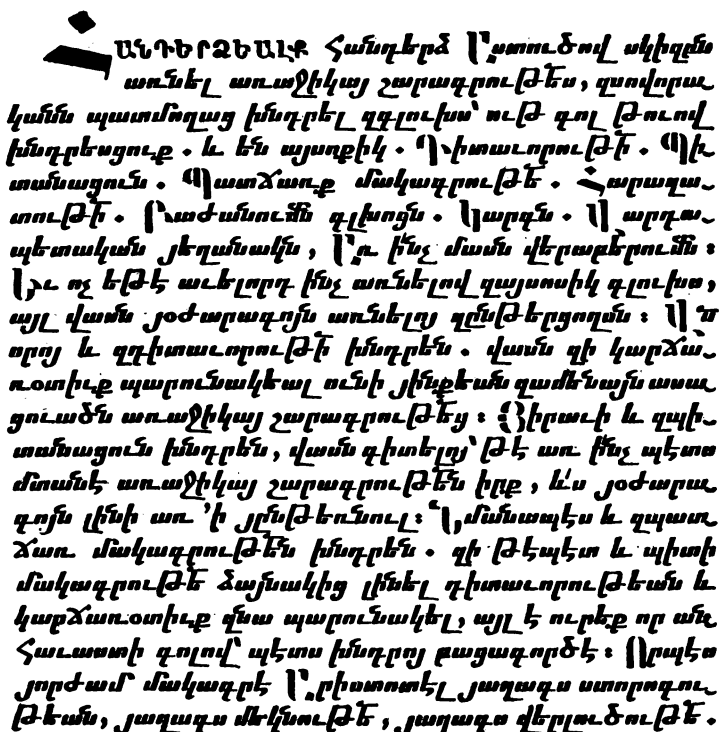 ՀԱՆԴԵՐՁԵԱԼՔ Հանդերձ Աստուծով սկիզբն
առնել առաջիկայ շարագրութես, զսովորա
կանսն պատմողաց խնդրել զգլուխս՝ ութ գոլ թուով
խնդրեսցուք. և են այսոքիկ. Դիտաւորութի. Պի
տանացուն. Պատճառք մակագրութե. Հարազա
տութի. Բաժանումն գլխոցն. Կարգն. Վարդա
պետական յեղանակն, Առ ինչ մասն վերաբերումն:
Եւ ոչ եթէ աւելորդ ինչ առնելով զայսոսիկ գլուխս,
այլ վասն յօժարագոյն առնելոյ զընթերցողսն: Վս
որոյ և զդիտաւորութի խնդրեն. վասն զի կարճա
ռօտիւք պարունակեալ ունի յինքեան զամենայն ասա
ցուածն առաջիկայ շարագրութեց: Իրաւի և զպի
տանացուն խնդրեն, վասն գիտելոյ՝ թէ առ ինչ պէտս
մտանէ առաջիկայ շարագրութեն իրք, և՛ս յօժարա
գոյն լինի առ ՚ի յընթեռնուլ: Նմանապէս և զպատ
ճառ մակագրութեն խնդրեն. զի թէպէտ և պիտի
մակագրութե ձայնակից լինել դիտաւորութեան և
կարճառօտիւք զնա պարունակել, այլ է ուրեք որ ան
հաւաստի գոլով՝ պէտս խնդրոյ բացագործէ: Որպէս
յորժամ մակագրէ Արիստոտէլ յաղագս ստորոգու
թեան, յաղագս մեկնութե, յաղագս վերլուծութե.